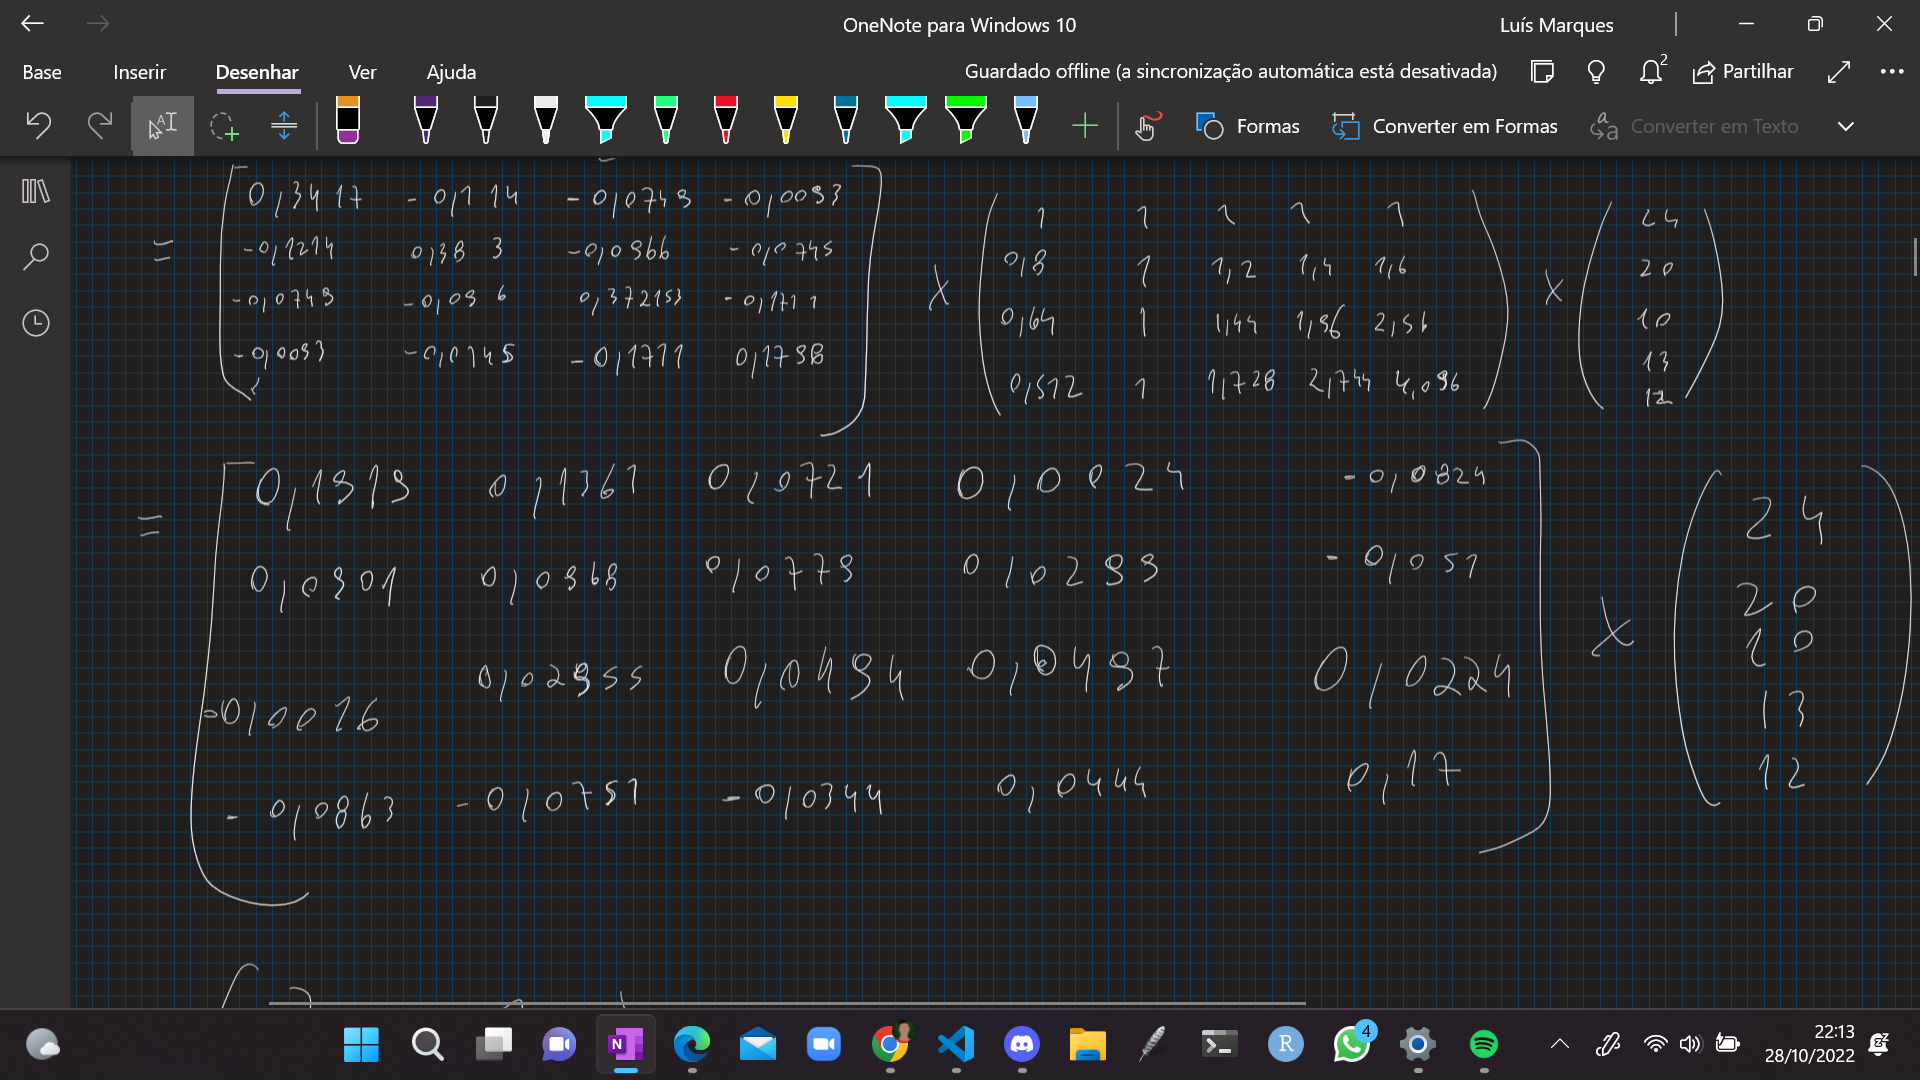 OneNote para Windows 10
Luís Marques
Base Inserir Desenhar Ver Ajuda
Guardado offline (a sincronização automática está desativada)
2
Partilhar
Formas
Converter em Formas
Converter em Texto
0,3417 -0,114 -0,0749 -0,0093
= -0,1214 0,383 -0,0966 -0,0745
-0,0749 -0,096 0,372153 -0,1711
-0,0093 -0,0745 -0,1711 0,1798
x
1 1 1 1 1
0,8 1 1,2 1,4 1,6
0,64 1 1,44 1,96 2,56
0,512 1 1,728 2,744 4,096
x
24
20
10
13
12
= 0,1919 0,1361 0,0721 0,0024 -0,0824
0,0901 0,0968 0,0779 0,0299 -0,051
-0,0016 0,02955 0,0494 0,0497 0,0224
-0,0863 -0,0751 -0,0344 0,0444 0,17
x
24
20
10
13
12
4
22:13
28/10/2022